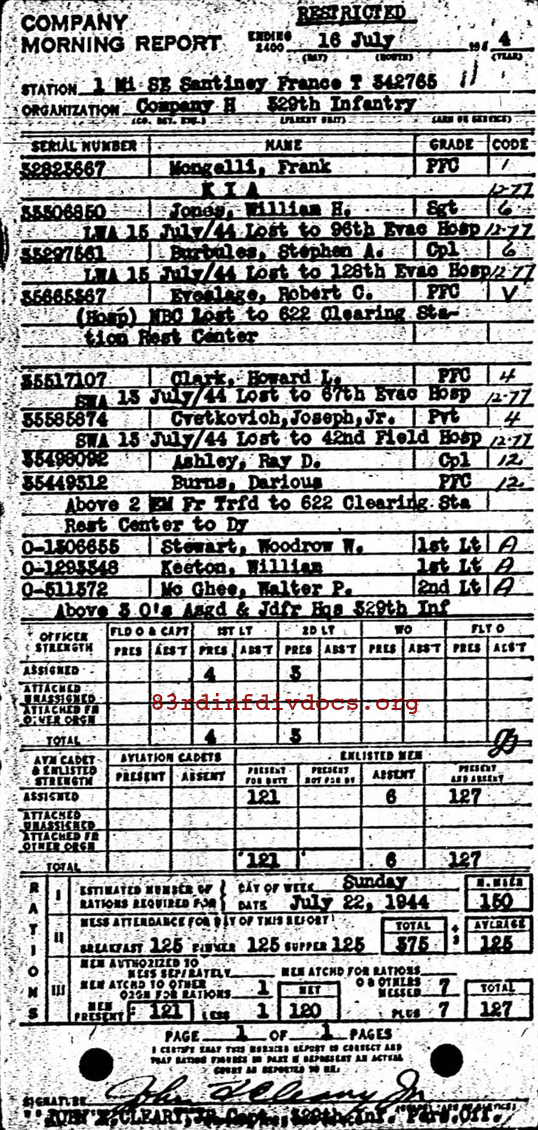 COMPANY
MORNING REPORT
RESTRICTED
ENDING 2400 16 July 194 4
(DAY) (MONTH) (YEAR)
STATION 1 Mi SE Santiney France T 342765
ORGANIZATION Company H 329th Infantry
SERIAL NUMBER NAME GRADE CODE
32823667 Mongelli, Frank PFC 1
K I A 12-77
35506850 Jones, William H. Sgt 6
LWA 15 July/44 Lost to 96th Evac Hosp 12-77
35297561 Burbules, Stephen A. Cpl 6
LWA 15 July/44 Lost to 128th Evac Hosp 12-77
35665367 Eveslage, Robert C. PFC V
(Hosp) NBC Lost to 622 Clearing Sta-
tion Rest Center
35517107 Clark, Howard L. PFC 4
SWA 15 July/44 Lost to 67th Evac Hosp 12-77
35585674 Cvetkovich, Joseph, Jr. Pvt 4
SWA 15 July/44 Lost to 42nd Field Hosp 12-77
35498092 Ashley, Ray D. Cpl 12
35449312 Burns, Darious PFC 12
Above 2 EM Fr Trfd to 622 Clearing Sta
Rest Center to Dy
O-1306655 Stewart, Woodrow W. 1st Lt A
O-1293348 Keeton, William 1st Lt A
O-511372 Mc Ghee, Walter P. 2nd Lt A
Above 3 O's Asgd & Jdfr Hqs 329th Inf
OFFICER STRENGTH FLD O & CAPT 1ST LT 2D LT WO FLT O
PRES ABS'T PRES ABS'T PRES ABS'T PRES ABS'T PRES ABS'T
ASSIGNED 4 3
ATTACHED UNASSIGNED
ATTACHED FR OTHER ORGN
83rdinfdivdocs.org
TOTAL 4 3
AVN CADET & ENLISTED STRENGTH AVIATION CADETS ENLISTED MEN
PRESENT ABSENT PRESENT FOR DUTY PRESENT NOT FOR DY ABSENT PRESENT AND ABSENT
ASSIGNED 121 6 127
ATTACHED UNASSIGNED
ATTACHED FR OTHER ORGN
TOTAL 121 6 127
RATIONS
I ESTIMATED NUMBER OF RATIONS REQUIRED FOR DAY OF WEEK Sunday NUMBER
DATE July 22, 1944 150
II MESS ATTENDANCE FOR DAY OF THIS REPORT TOTAL ÷ 3 AVERAGE
BREAKFAST 125 DINNER 125 SUPPER 125 375 125
III MEN AUTHORIZED TO MESS SEPARATELY MEN ATCHD FOR RATIONS
MEN ATCHD TO OTHER ORGN FOR RATIONS 1 NET O & OTHERS MESSED 7 TOTAL
MEN PRESENT 121 LESS 1 120 PLUS 7 127
PAGE 1 OF 1 PAGES
I CERTIFY THAT THIS MORNING REPORT IS CORRECT AND
THAT RATION FIGURES IN PART III REPRESENT AN ACTUAL
COUNT AS REPORTED TO ME.
SIGNATURE John K Cleary Jr
JOHN K. CLEARY, JR Capt., 329th Inf. Pers. Off.